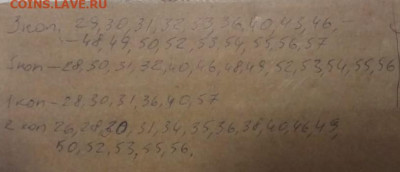 СОINS.LAVE.RU
3 коп. 29,30,31,32,53,36,40,43,46,-
-48,49,50,52,53,54,55,56,57
коп-28,30,31,32,40,46,48,49,52,53,54,55,56
1 коп-28,30,31,36,40,57
2 коп 26,28,20,31,34,35,36,38,40,46,49,
50,52,53,55,56.